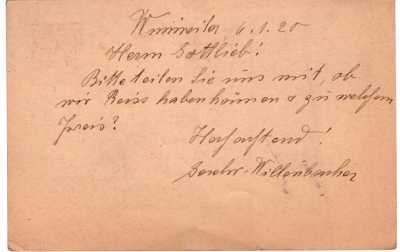 Winnweiler, 6.1.20
Herrn Gottlieb!
Bitte teilen Sie uns mit, ob
wir Reiss haben können & zu welchem
Preis?
Hochachtend!
Willenbacher